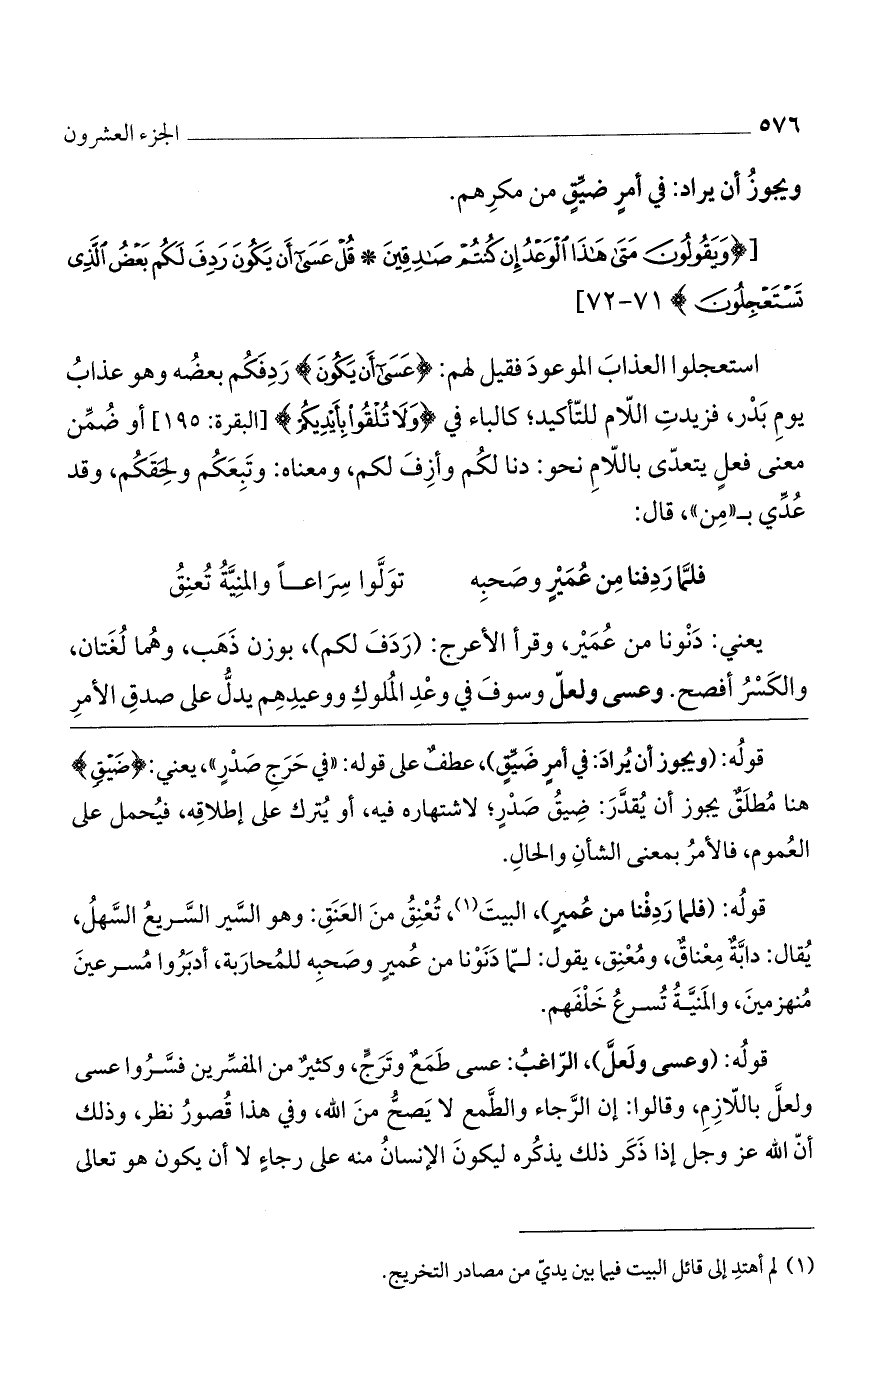 ٥٧٦ الجزء العشرون
ويجوزُ أن يراد: في أمرٍ ضيِّقٍ من مكرِهم.
[﴿وَيَقُولُونَ مَتَىٰ هَٰذَا ٱلْوَعْدُ إِن كُنتُمْ صَٰدِقِينَ * قُلْ عَسَىٰٓ أَن يَكُونَ رَدِفَ لَكُم بَعْضُ ٱلَّذِى
تَسْتَعْجِلُونَ﴾ ٧١-٧٢]
استعجلوا العذابَ الموعودَ فقيل لهم: ﴿عَسَىٰٓ أَن يَكُونَ﴾ رَدِفَكُم بعضُه وهو عذابُ
يومِ بَدْر، فزيدتِ اللّام للتّأكيد؛ كالباء في ﴿وَلَا تُلْقُوا۟ بِأَيْدِيكُمْ﴾ [البقرة: ١٩٥] أو ضُمِّن
معنى فعلٍ يتعدّى باللّامِ نحو: دنا لكُم وأزِفَ لكم، ومعناه: وتَبِعَكُم ولحِقَكُم، وقد
عُدِّي بـ«مِن»، قال:
فلمَّا رَدِفنا مِن عُمَيْرٍ وصَحبِه توَلَّوا سِرَاعـــاً والمنِيَّةُ تُعنِقُ
يعني: دَنْونا من عُمَيْر، وقرأ الأعرج: (رَدَفَ لكم)، بوزن ذَهَب، وهُما لُغَتان،
والكَسْرُ أفصح. وعسى ولعلّ وسوفَ في وعْدِ المُلوكِ ووعيدِهم يدلُّ على صدقِ الأمرِ
قولُه: (ويجوز أن يُرادَ: في أمرٍ ضَيِّقٍ)، عطفٌ على قوله: «في حَرَجِ صَدْرٍ»، يعني: ﴿ضَيْقٍ﴾
هنا مُطلَقٌ يجوز أن يُقدَّرَ: ضِيقُ صَدْرٍ؛ لاشتهاره فيه، أو يُترك على إطلاقِه، فيُحمل على
العُموم، فالأمرُ بمعنى الشأنِ والحالِ.
قولُه: (فلما رَدِفْنا من عُميرٍ)، البيتَ(١)، تُعْنِقُ منَ العَنَقِ: وهو السَّير السَّريعُ السَّهلُ،
يُقال: دابَّةٌ مِعْناقٌ، ومُعْنِق، يقول: لـمّا دَنَوْنا من عُميرٍ وصَحبِه للمُحاربَة، أدبَرُوا مُسـرعينَ
مُنهزمينَ، والمَنيَّـةُ تُسـرعُ خَلْفَهم.
قولُه: (وعسى ولَعلَّ)، الرّاغبُ: عسى طَمَعٌ وتَرَجٍّ، وكثيرٌ من المفسِّرين فسَّـرُوا عسى
ولعلَّ باللّازمِ، وقالوا: إن الرَّجاء والطَّمع لا يَصحُّ منَ الله، وفي هذا قُصورُ نظر، وذلك
أنّ الله عز وجل إذا ذَكَر ذلك يذكُره ليكونَ الإنسانُ منه على رجاءٍ لا أن يكون هو تعالى
(١) لم أهتدِ إلى قائل البيت فيما بين يديّ من مصادر التخريج.